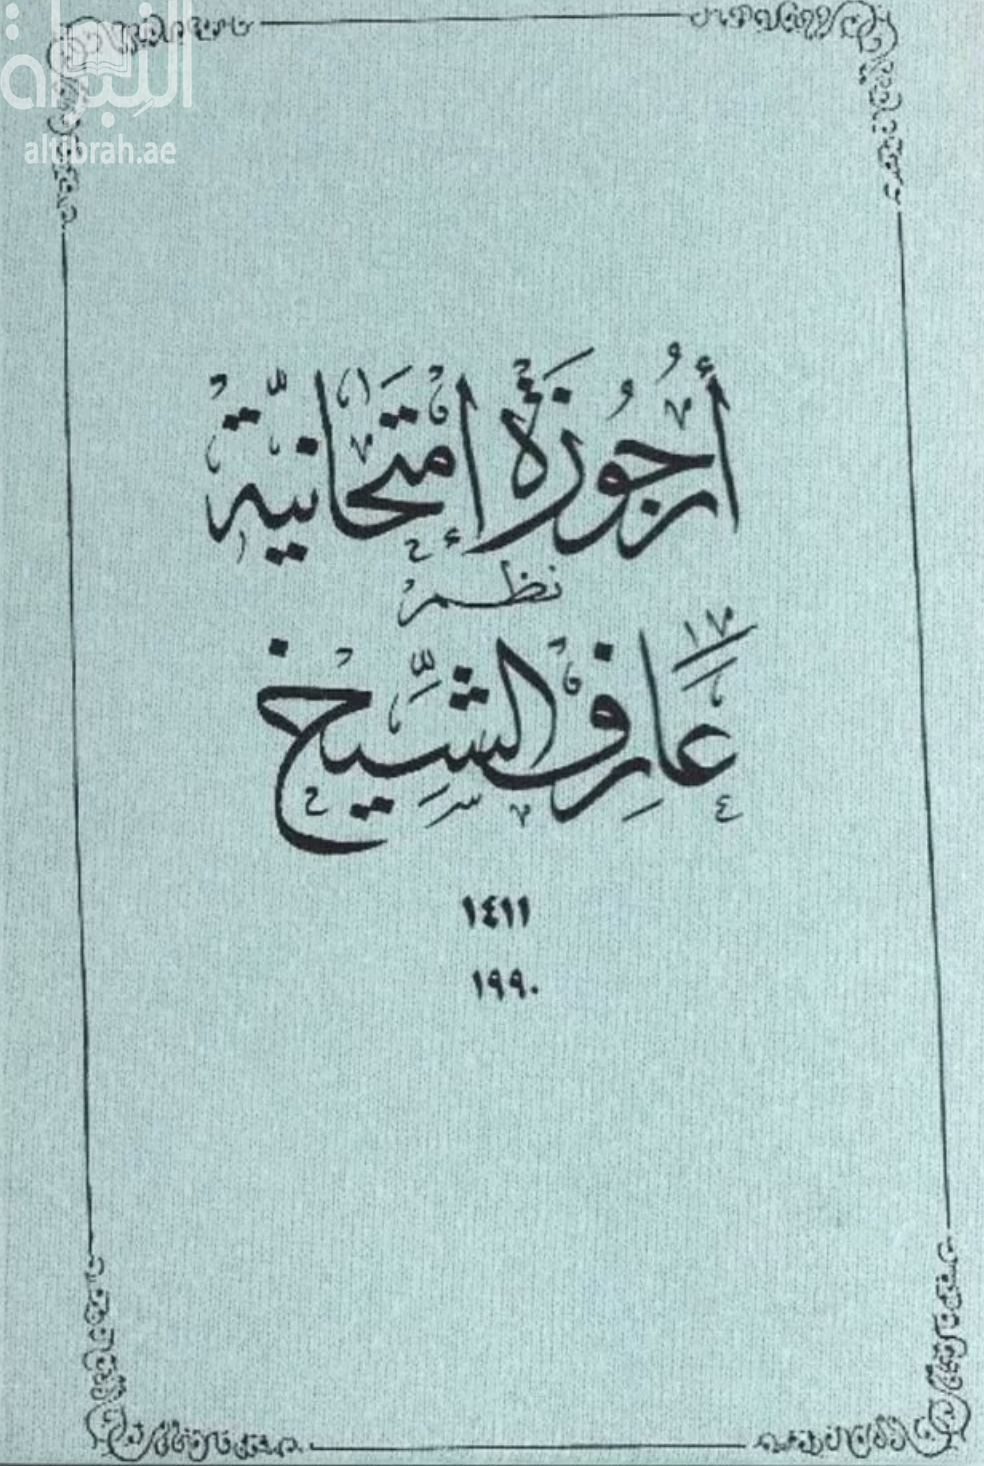 النبراة
altibrah.ae
أُرْجُوزَةٌ إِمْتِحَانِيَّةٌ
نظمُ
عَارِفُ الشِّيخُ
١٤١١
١٩٩٠